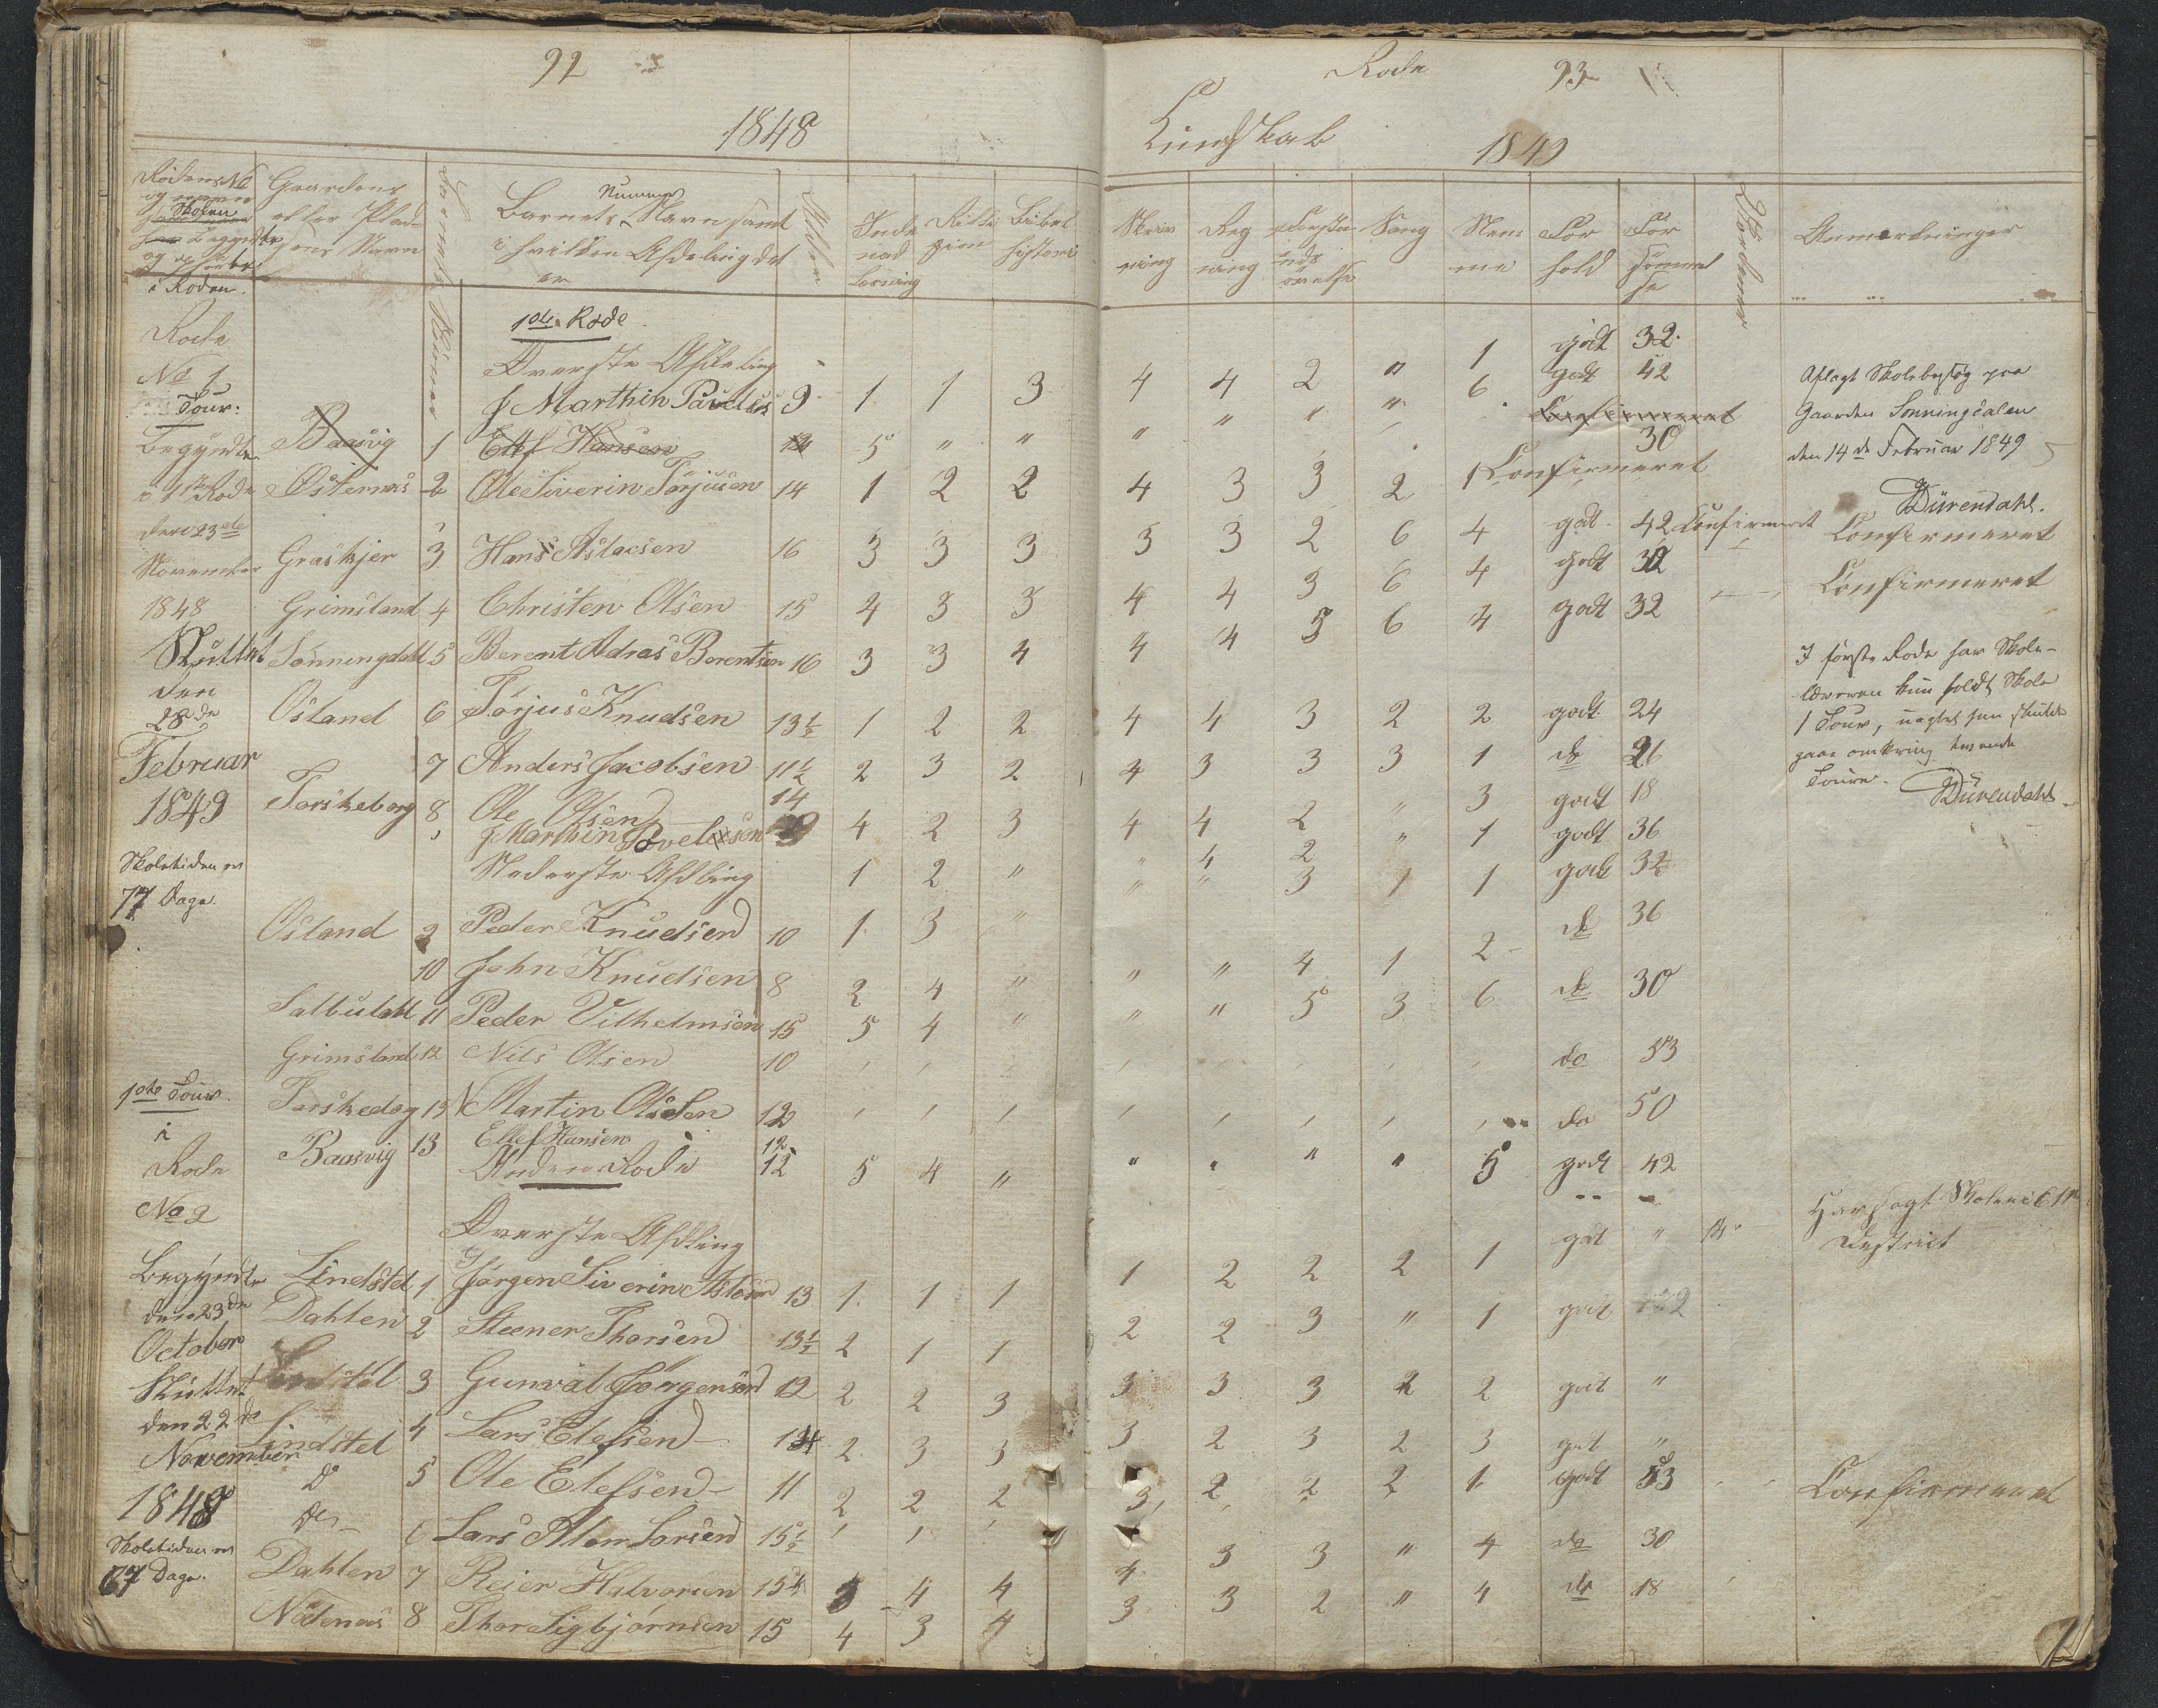 92
1848
Rodens No
og
Skolen
begyndte
og
i Roden.
Gaardens
eller Plad-
sens Navn
Barnets Nummer
Barnets Nummer Navn samt
i hvilken Afdeling det
er
Alder
Inde
nad
Læsning
Relli
gion
Bibel
historie
Rode
No 1
Tour:
1ste Rode
Øverste Afdeling
J Marthin Pauelus 9 1 1 3
Begyndte Baasvig 1 Ellef Hansen 12 5 " "
i 1ste Rode Østernes 2 Ole Siverin Torjusen 14 1 2 2
den 23de
November Graskjer 3 Hans Aslacsen 16 3 3 3
1848 Grimsland 4 Christen Olsen 15 4 3 3
Sluttet Sønningdahl 5 Berent Adras Berentsen 16 3 3 4
den
28de Osland 6 Torjus Knudsen 13½ 1 2 2
Februar 7 Anders Jacobsen 11½ 2 3 2
1849 Torskeborg 8 Ole Olsen 14 4 2 3
J Marthin Povelsen 9
Skoletiden er Nederste Afdling 1 2 "
77 Dage.
Osland 9 Peder Knudsen 10 1 3 "
10 John Knudsen 8 2 4 "
Salbudahl 11 Peder Vilhelmsen 15 5 4 "
Grimsland 12 Nils Olsen 10
1ste Tour. Torskedag 13 Martin Olsen 12
i Baasvig 13 Ellef Hansen 12
Rode Anden Rode 12 5 4 "
No 2
Øverste Afdling
Begyndte Lindstel 1 Jørgen Siverin 13 1 1 1
den 23de Dahlen 2 Steener Thorsen 13½ 2 1 1
October
Sluttet Lindstel 3 Gunval Jørgensen 12 2 2 3
den 22de Lindstel 4 Lars Elefsen 14 2 3 3
November
Do 5 Ole Elefsen 11 2 2 2
1848 Do 6 Lars Larsen 15½
Skoletiden er
67 Dage. Dahlen 7 Reier Halvorsen 15½ 5 4 4
Nødenes 8 Thor Sigbjørnsen 15 4 3 4
Rode 93
Kundskab 1849
Skriv
ning
Reg
ning
Forstan
ds
øvelse
Sang
Nem
me
For
hold
For
sømmel
se
Anmærkninger
4 4 2 " 1 godt 32
" " " " 6 godt 42
Confirmeret
4 3 3 2 1 Confirmeret 30
3 3 2 6 4 godt 42 Confirmeret Confirmeret
4 4 3 6 4 godt 32 Confirmeret
4 4 5 6 4 godt 32
4 4 3 2 2 godt 24
4 3 3 3 1 do 26
4 4 2 " 3 godt 18
" 4 2 " 1 godt 36
" " 3 1 1 godt 32
do 36
" " 4 1 2
" " 5 3 6 do 30
do 53
do 50
" " " " 5 godt 42
1 2 2 2 1 godt "
2 2 3 " 1 godt
3 3 3 2 2 godt "
3 2 3 2 3 godt "
3 2 2 2 1 godt 53 Confirmeret
4 3 3 " 4 do 30
3 3 2 " 4 do 18
Aflagt Skolebesøg paa
Gaarden Sonningdalen
den 14de Februar 1849
Dürendahl.
I første Rode har Skole-
læreren kun holdt Skole
1 Tour, uagtet han skulde
gaae omkring
Toure. Dürendahl.
Har søgt Skolen i
District